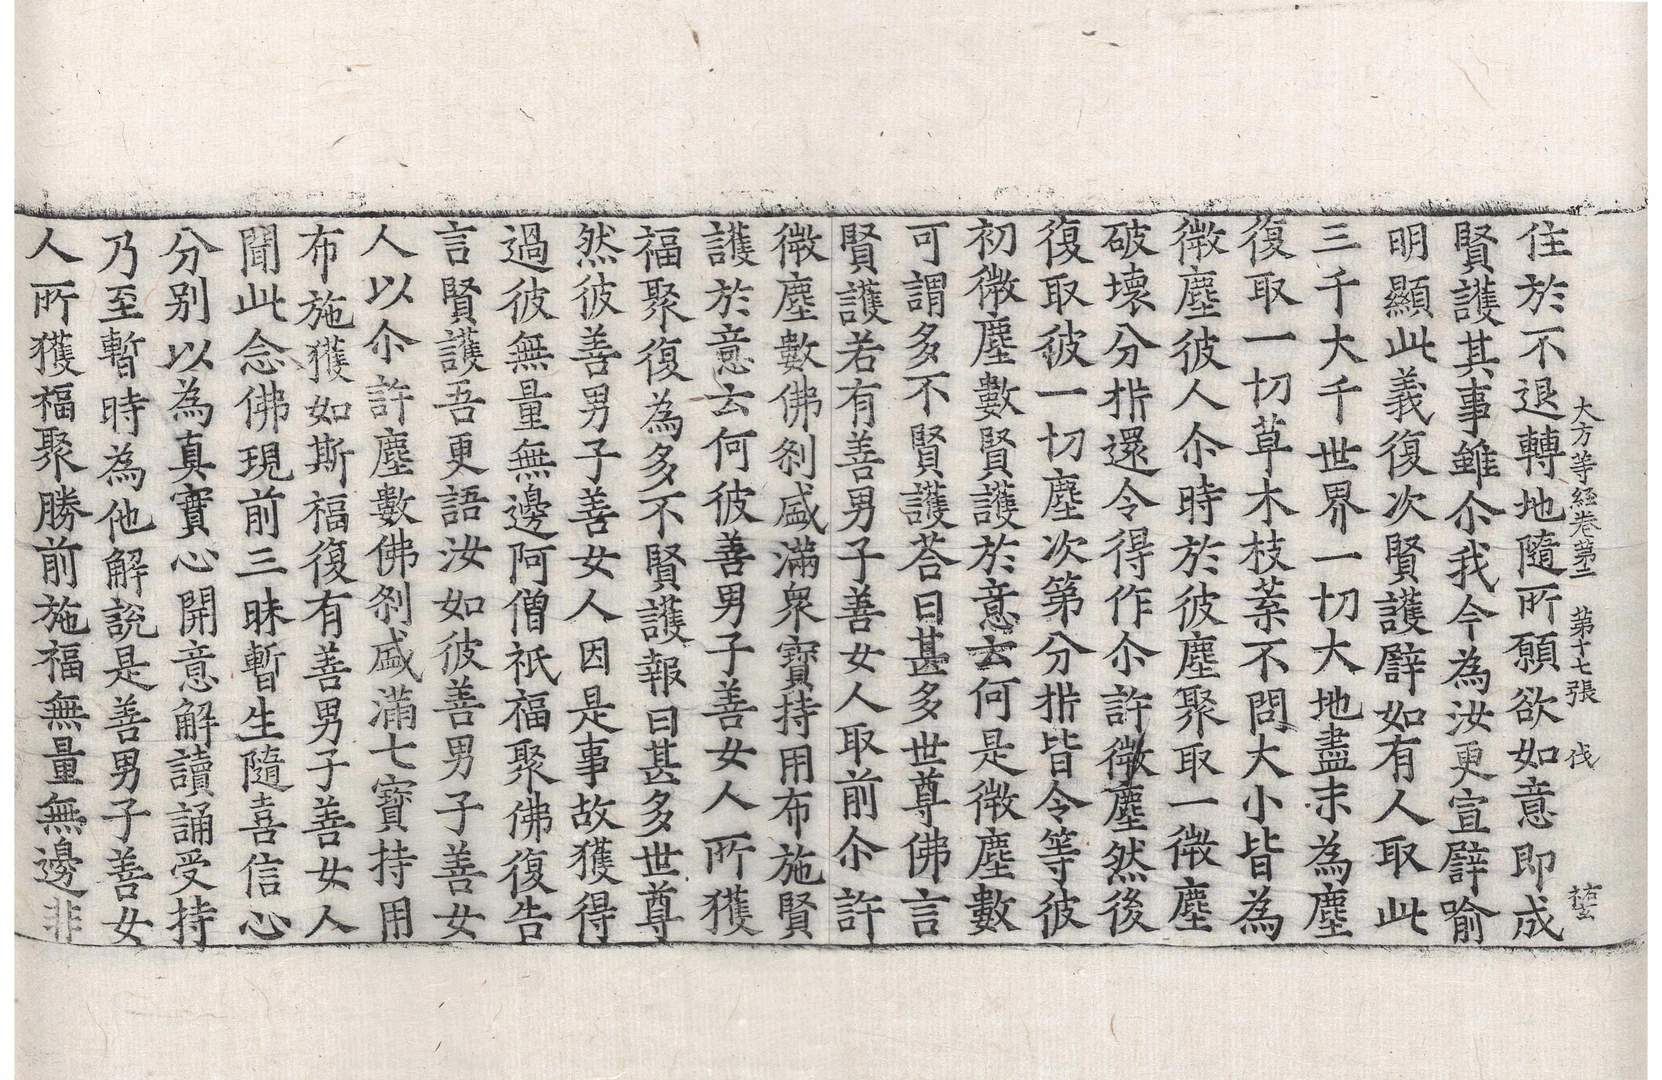 大方等經卷第二 第十七張 伐
住於不退轉地隨所願欲如意即成
賢護其事雖尒我今為汝更宣譬喻
明顯此義復次賢護譬如有人取此
三千大千世界一切大地盡末為塵
復取一切草木枝葉不問大小皆為
微塵彼人尒時於彼塵聚取一微塵
破壞分析還令得作尒許微塵然後
復取彼一切塵次第分析皆令等彼
初微塵數賢護於意云何是微塵數
可謂多不賢護荅曰甚多世尊佛言
賢護若有善男子善女人取前尒許
微塵數佛剎盛滿衆寶持用布施賢
護於意云何彼善男子善女人所獲
福聚復為多不賢護報曰甚多世尊
然彼善男子善女人因是事故獲得
過彼無量無邊阿僧祇福聚佛復告
言賢護吾更語汝如彼善男子善女
人以尒許塵數佛剎盛滿七寶持用
布施獲如斯福復有善男子善女人
聞此念佛現前三昧暫生隨喜信心
分別以為真實心開意解讀誦受持
乃至暫時為他解說是善男子善女
人所獲福聚勝前施福無量無邊非